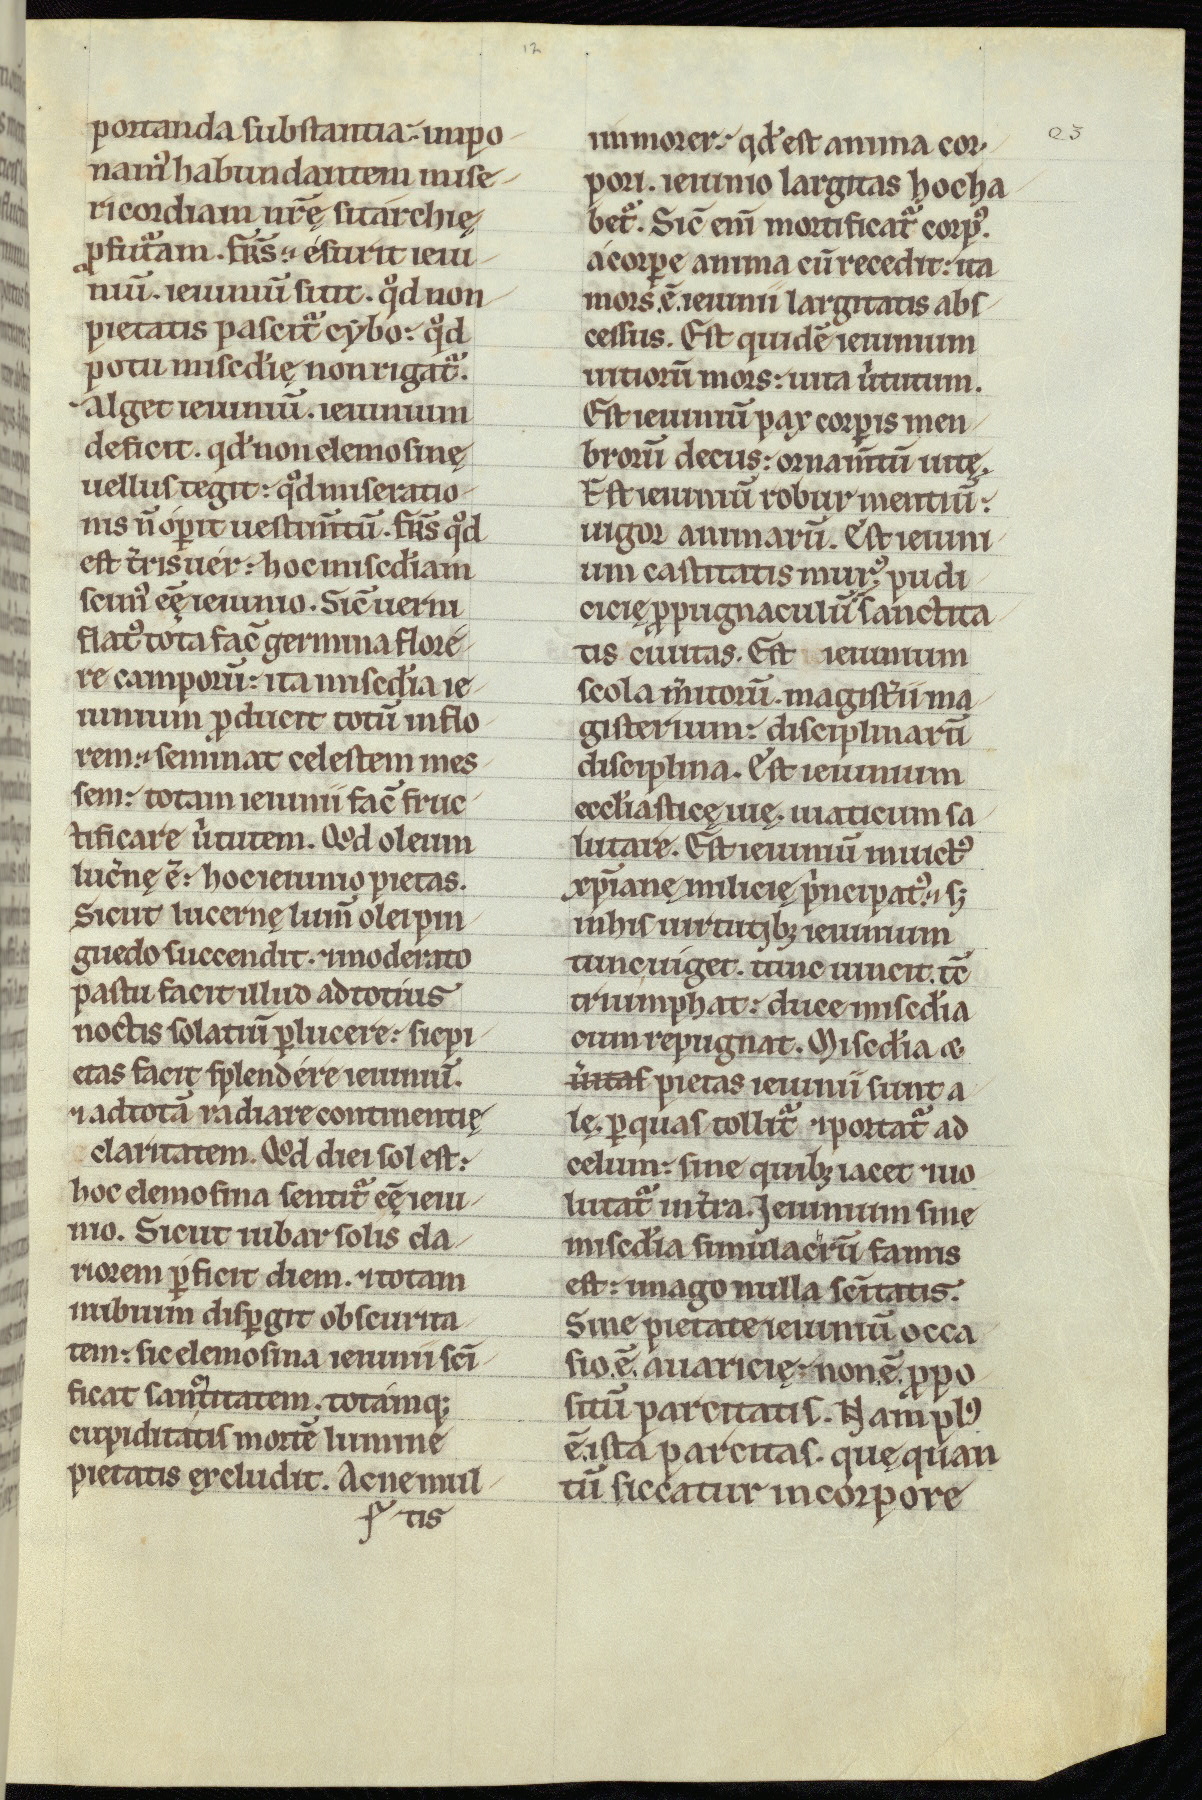 12
25
portanda substantia: impo
nam᾽ habundantem mise
ricordiam nr̄ę sitarchię
ꝓfutᷓam. fr̄s. esurit ieiu
niū. ieiuniū sitit. qͦd non
pietatis pascitᷓ cybo: qͦd
potu misc̄dię non rigatᷓ.
Alget ieiuniū. ieiunium
deficit. qd᾽ non elemosinę
uellus tegit: qͦd miseratio
nis n̄ operit uestim̄tū. fr̄s qͦd
est t̄ris uér: hoc misc̄diam
scim᾽ ee᷑ ieiunio. Sic̄ uerni
flat᾽ tota fac̄ germina flore
re camporū: ita misc̄dia ie
iunium ꝓducit totū in flo
rem: seminat celestem mes
sem: totam ieiunii fac̄ fruc
tificare u᷑tutem. Qod oleum
luc᷑nę ē: hoc ieiunio pietas.
Sicut lucernę lum̄ olei pin
guedo succendit. ⁊ moderato
pastu facit illud ad totius
noctis solatiū ꝑlucere: sic pi
etas facit splendére ieiuniū.
⁊ ad totā radiare continentię
claritatem. Qod diei sol est:
hoc elemosina sentitᷓ ee᷑ ieiu
nio. Sicut iubar solis cla
riorem ꝑficit diem. ⁊ totam
nubium dispgit obscurita
tem: sic elemosina ieiunii sc̄i
ficat sanctitatem. totámq;
cupiditátis mortē lumine
pietatis ęxcludit. Ac ne mul
tis
inmorer: qd᾽ est anima cor
pori. ieiunio largitas hoc ha
betᷓ. Sic̄ eni᷑ mortificatᷓ corp᾽.
á corꝑe anima cū recedit: ita
mors .ē. ieiunii largitatis abs
cessus. Est quidē ieiunium
uitiorū mors: uita u᷑tutum.
Est ieiuniū pax corꝑis men
brorū decus: ornam̄tū uitę.
Est ieiuniū robur mentiū:
uigor animarū. Est ieiuni
um castitatis mur᾽. pudi
cicię ꝓpugnaculū sanctita
tis ciuitas. Est ieiunium
scola m᷑itorū. magist᷑ii ma
gisterium: disciplinarū
disciplina. Est ieiunium
eccl᾽iasticę uię. uiaticum sa
lutare. Est ieiuniū inuict᾽
xp̄ianę milicię p᷑ncipat᾽. sꝫ
in his uirtutibꝫ ieiunium
tunc uiget. tunc uincit. tc̄
triumphat: duce misc̄dia
cum repugnat. Misc̄dia &
u᷑itas pietas ieiunii sunt a
lę. ꝑ quas tollitᷓ ⁊ portatᷓ ad
celum: sine quibꝫ iacet ⁊ uo
lutatᷓ in t᷑ra. Jeiunium sine
misc̄dia simulacrū famis
est: imago nulla sc̄itatis.
Sine pietate ieiuniū occa
sio .ē. auaricię: non .ē. ꝓpo
sitū parcitatis. Nam pl᾽
ē. ista parcitas. quę quan
tū siccatur in corpore